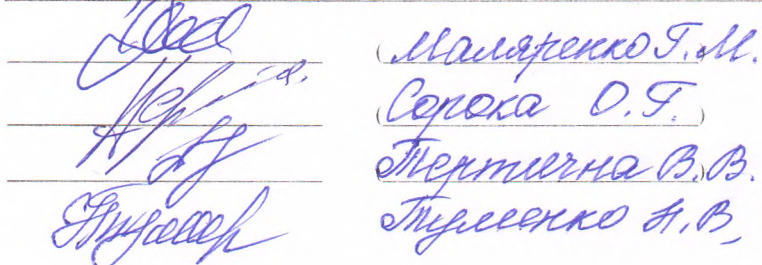 (Маляренко Г. М.
(Сорока О. Г.)
(Тертична В. В.)
Туменко Н. В.